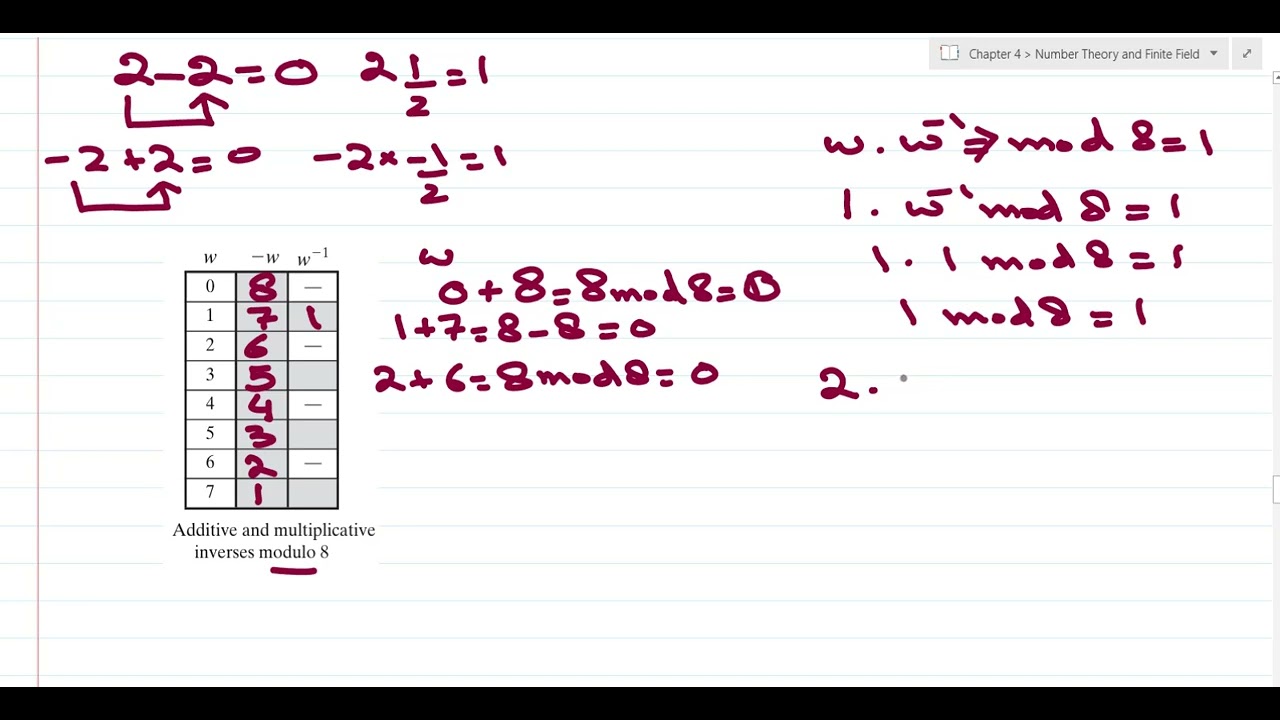 Chapter 4 > Number Theory and Finite Field
2 - 2 = 0
2 1/2 = 1
-2 + 2 = 0
-2 × -1/2 = 1
w -w w⁻¹
0 8 —
1 7 1
2 6 —
3 5
4 4 —
5 3
6 2 —
7 1
Additive and multiplicative
inverses modulo 8
w
0 + 8 = 8 mod 8 = 0
1 + 7 = 8 - 8 = 0
2 + 6 = 8 mod 8 = 0
w . w⁻¹ ⇒ mod 8 = 1
1 . w⁻¹ mod 8 = 1
1 . 1 mod 8 = 1
1 mod 8 = 1
2 .